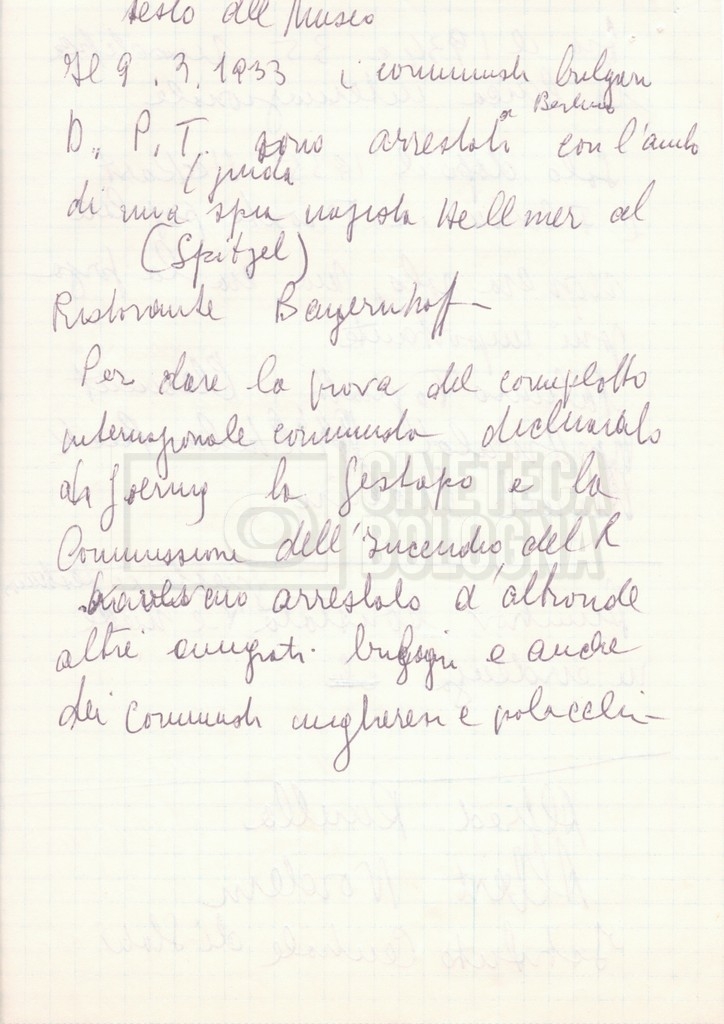 testo del Museo
Il 9.3.1933 i comunisti bulgari
a Berlino
D., P., T. sono arrestati con l'aiuto
(guida
di una spia nazista Hellmer al
(Spitzel)
Ristorante Bayernhoff -
Per dare la prova del complotto
internazionale comunista dichiarato
da Goering la Gestapo e la
Commissione dell'Incendio del R
arrestato d'altronde
altri emigrati bulgari e anche
dei comunisti ungheresi e polacchi -
CINETECA
BOLOGNA